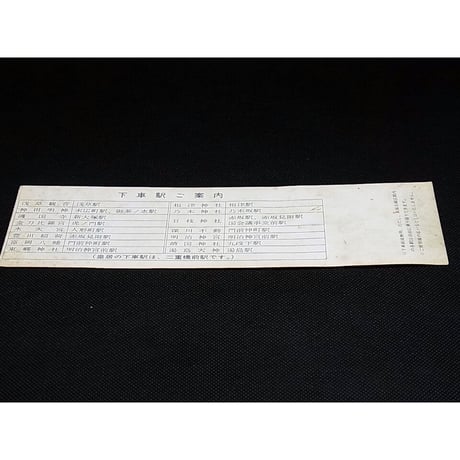 下車駅ご案内
浅草観音 浅草駅
神田明神 末広町駅、御茶ノ水駅
護国寺 新大塚駅
金刀比羅宮 虎ノ門駅
水天宮 人形町駅
豊川稲荷 赤坂見附駅
富岡八幡 門前仲町駅
東郷神社 明治神宮前駅
根津神社 根津駅
乃木神社 乃木坂駅
日枝神社 赤坂駅、赤坂見附駅
国会議事堂前駅
深川不動 門前仲町駅
明治神宮 明治神宮前駅
靖国神社 九段下駅
湯島天神 湯島駅
(皇居の下車駅は、二重橋前駅です。)